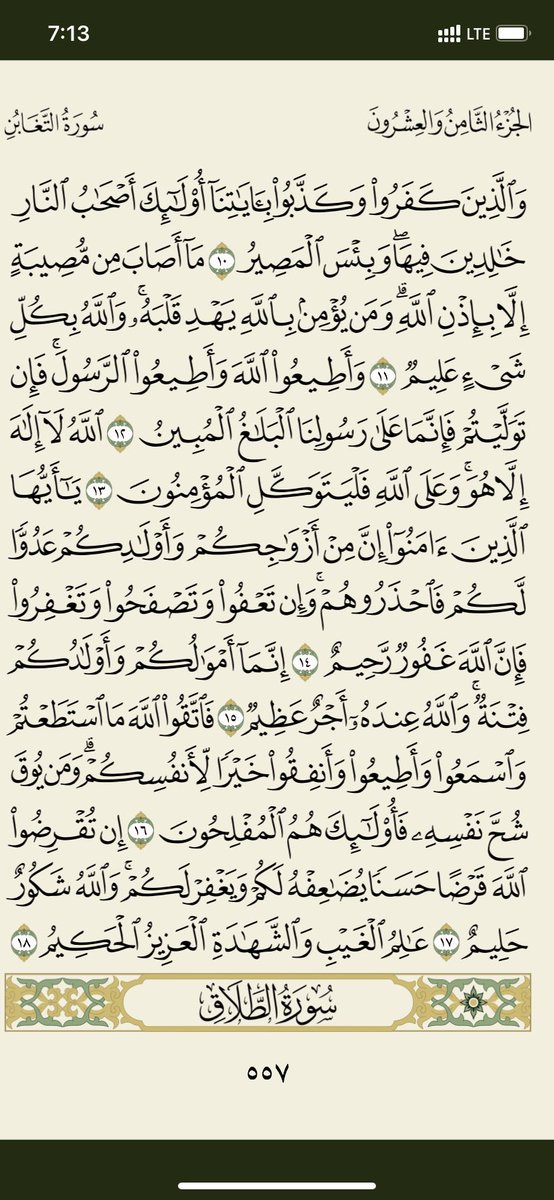 7:13 LTE
الجُزْءُ الثَّامِنُ وَالعِشْرُونَ سُورَةُ التَّغَابُنِ
وَٱلَّذِينَ كَفَرُوا۟ وَكَذَّبُوا۟ بِـَٔايَٰتِنَآ أُو۟لَٰٓئِكَ أَصْحَٰبُ ٱلنَّارِ
خَٰلِدِينَ فِيهَا ۖ وَبِئْسَ ٱلْمَصِيرُ ١٠ مَآ أَصَابَ مِن مُّصِيبَةٍ
إِلَّا بِإِذْنِ ٱللَّهِ ۗ وَمَن يُؤْمِنۢ بِٱللَّهِ يَهْدِ قَلْبَهُۥ ۚ وَٱللَّهُ بِكُلِّ
شَىْءٍ عَلِيمٌ ١١ وَأَطِيعُوا۟ ٱللَّهَ وَأَطِيعُوا۟ ٱلرَّسُولَ ۚ فَإِن
تَوَلَّيْتُمْ فَإِنَّمَا عَلَىٰ رَسُولِنَا ٱلْبَلَٰغُ ٱلْمُبِينُ ١٢ ٱللَّهُ لَآ إِلَٰهَ
إِلَّا هُوَ ۚ وَعَلَى ٱللَّهِ فَلْيَتَوَكَّلِ ٱلْمُؤْمِنُونَ ١٣ يَٰٓأَيُّهَا
ٱلَّذِينَ ءَامَنُوٓا۟ إِنَّ مِنْ أَزْوَٰجِكُمْ وَأَوْلَٰدِكُمْ عَدُوًّا
لَّكُمْ فَٱحْذَرُوهُمْ ۚ وَإِن تَعْفُوا۟ وَتَصْفَحُوا۟ وَتَغْفِرُوا۟
فَإِنَّ ٱللَّهَ غَفُورٌ رَّحِيمٌ ١٤ إِنَّمَآ أَمْوَٰلُكُمْ وَأَوْلَٰدُكُمْ
فِتْنَةٌ ۚ وَٱللَّهُ عِندَهُۥٓ أَجْرٌ عَظِيمٌ ١٥ فَٱتَّقُوا۟ ٱللَّهَ مَا ٱسْتَطَعْتُمْ
وَٱسْمَعُوا۟ وَأَطِيعُوا۟ وَأَنفِقُوا۟ خَيْرًا لِّأَنفُسِكُمْ ۗ وَمَن يُوقَ
شُحَّ نَفْسِهِۦ فَأُو۟لَٰٓئِكَ هُمُ ٱلْمُفْلِحُونَ ١٦ إِن تُقْرِضُوا۟
ٱللَّهَ قَرْضًا حَسَنًا يُضَٰعِفْهُ لَكُمْ وَيَغْفِرْ لَكُمْ ۚ وَٱللَّهُ شَكُورٌ
حَلِيمٌ ١٧ عَٰلِمُ ٱلْغَيْبِ وَٱلشَّهَٰدَةِ ٱلْعَزِيزُ ٱلْحَكِيمُ ١٨
سُورَةُ الطَّلَاقِ
٥٥٧